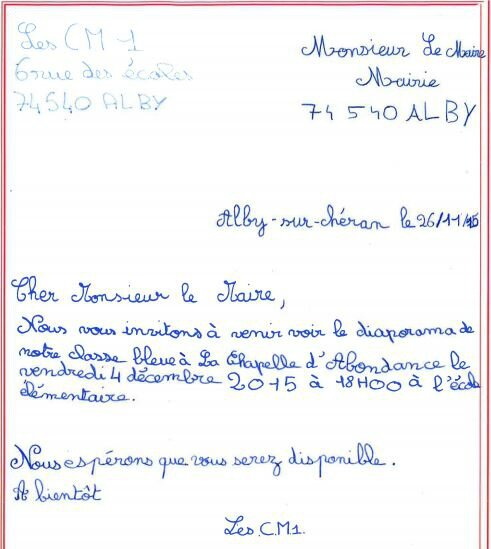 Les CM1
6 rue des écoles
74540 ALBY
Monsieur Le Maire
Mairie
74 540 ALBY
Alby-sur-chéran le 26/11/15
Cher Monsieur le Maire,
Nous vous invitons à venir voir le diaporama de
notre classe bleue à La Chapelle d'Abondance le
vendredi 4 décembre 2015 à 18H00 à l'école
élémentaire.
Nous espérons que vous serez disponible.
A bientôt
Les CM1.